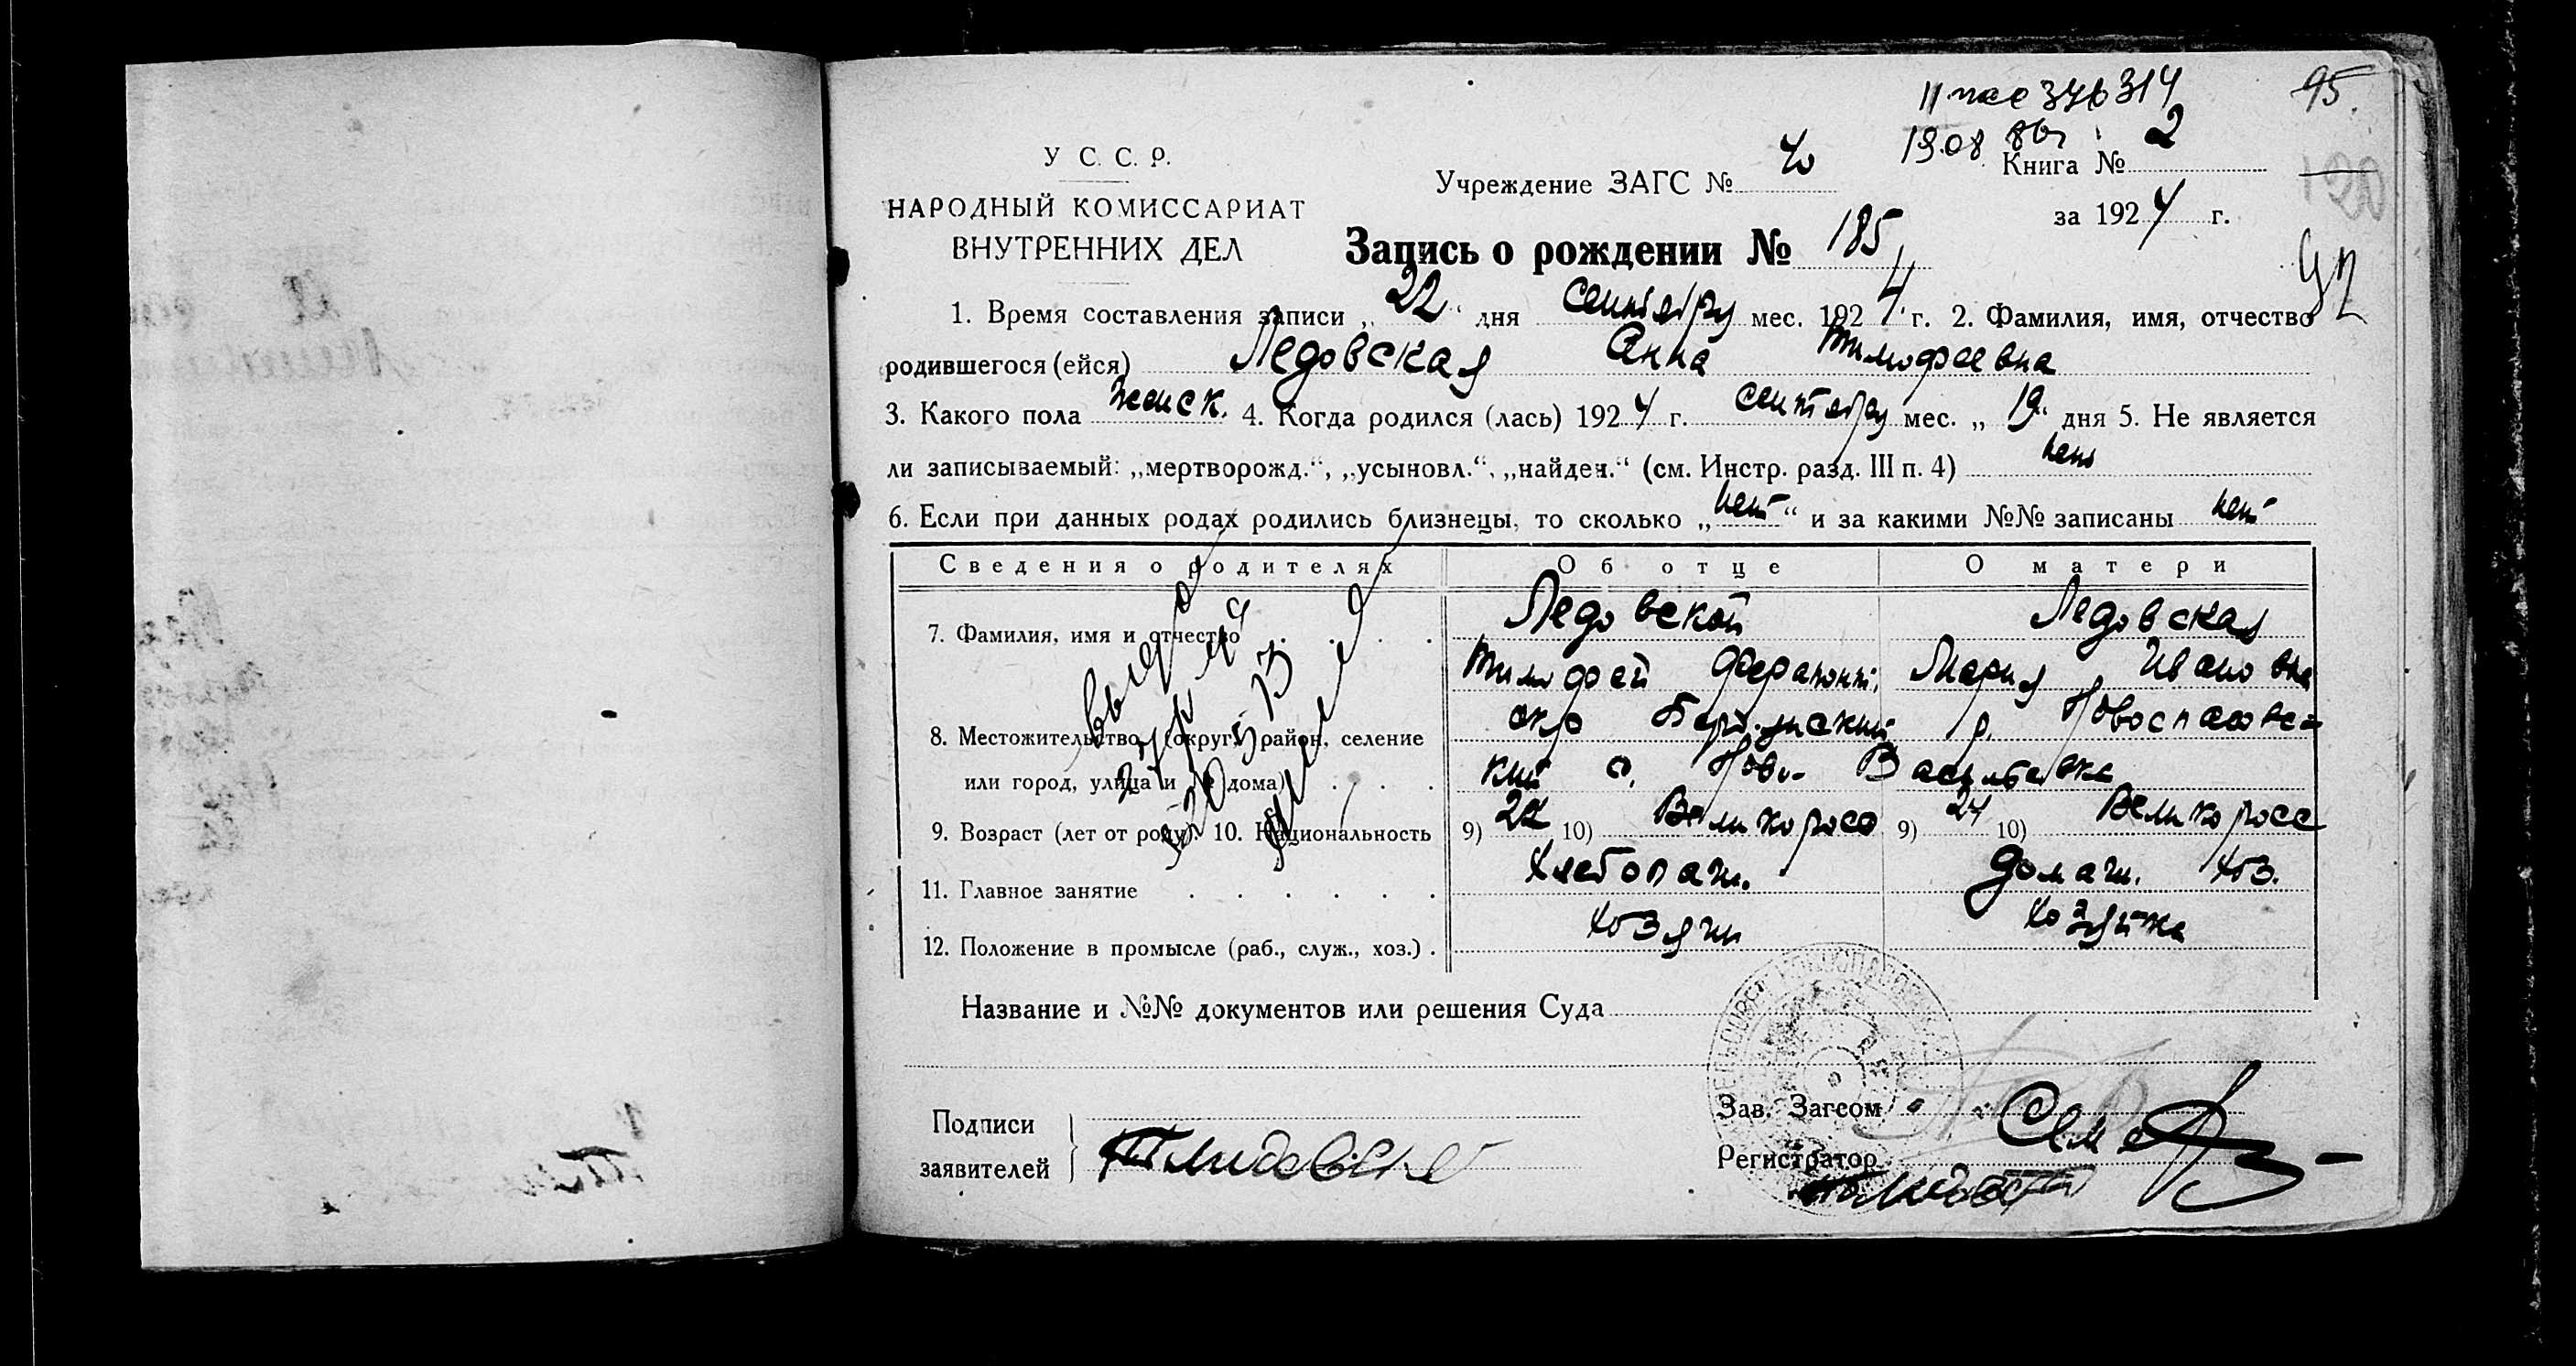 95.
II пас 376314
19.08 86г
У С. С. Р.
НАРОДНЫЙ КОМИССАРИАТ
ВНУТРЕННИХ ДЕЛ
Учреждение ЗАГС № 40
Книга № 2
за 1924 г.
Запись о рождении № 185
1. Время составления записи „ 22 “ дня сентября мес. 1924 г. 2. Фамилия, имя, отчество
родившегося (ейся) Ледовская Анна Тимофеевна
3. Какого пола женск. 4. Когда родился (лась) 1924 г. сентября мес. „ 19 “ дня 5. Не является
ли записываемый: „мертворожд.“, „усыновл.“, „найден.“ (см. Инстр. разд. III п. 4) нет
6. Если при данных родах родились близнецы, то сколько „ нет “ и за какими №№ записаны нет
Сведения о родителях Об отце О матери
7. Фамилия, имя и отчество Ледовской Ледовская
Тимофей Ферапонт. Мария Ивановна
8. Местожительство (округ, район, селение окр Бердянский р. Новоспасовс-
или город, улица и № дома) кий с. Ново-Васильевка
9. Возраст (лет от роду) 10. Национальность 9) 22 10) Великоросс 9) 24 10) Великоросс
11. Главное занятие Хлебопаш. домаш. хоз.
12. Положение в промысле (раб., служ., хоз.) хозяин хозяйка
Название и №№ документов или решения Суда
Подписи
заявителей
Зав. Загсом
Регистратор